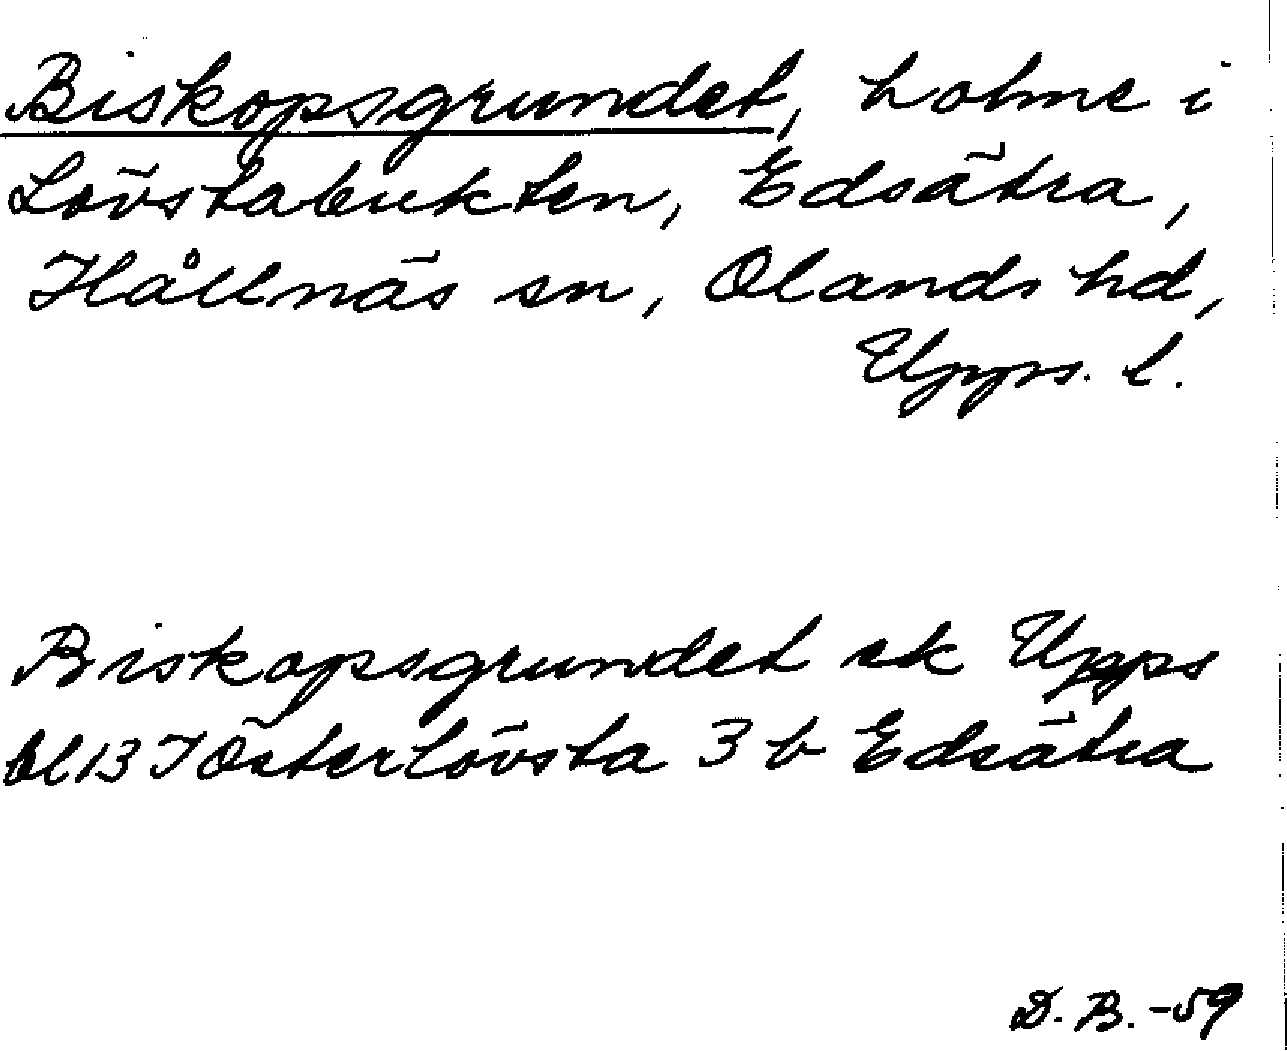 Biskopsgrundet, holme i
Lövstabukten, Edsätra,
Hållnäs sn, Olands hd,
Upps. l.
Biskopsgrundet ek Upps
bl 13 I Österlövsta 3 b Edsätra
D. B. -59